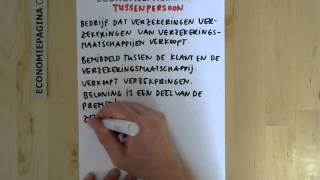 ECONOMIEPAGINA.C
TUSSENPERSOON
BEDRIJF DAT VERZEKERINGEN VER-
ZEKERINGEN VAN VERZEKERINGS-
MAATSCHAPPIJEN VERKOOPT.
BEMIDDELD TUSSEN DE KLANT EN DE
VERZEKERINGSMAATSCHAPPIJ.
VERKOOPT VERZEKERINGEN.
BELONING IS EEN DEEL VAN DE
PREMIE